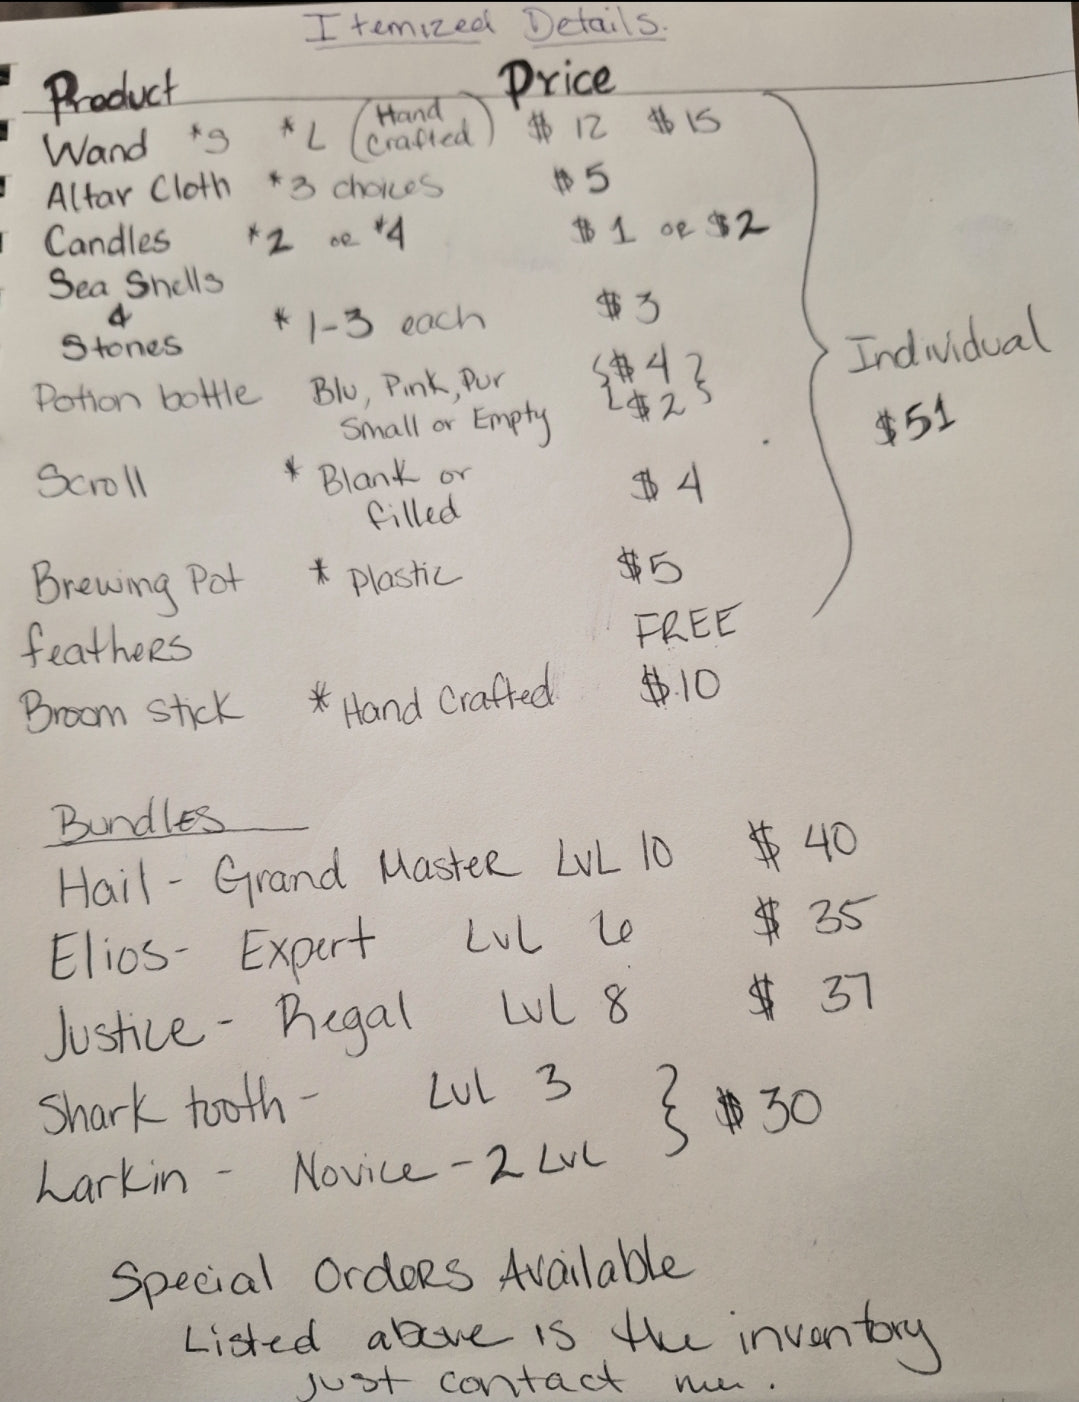 Itemized Details.
Product Price
Wand *S *L (Hand Crafted) $12 $15
Altar Cloth *3 choices $5
Candles *2 or *4 $1 or $2
Sea Shells
&
Stones * 1-3 each $3
Potion bottle Blu, Pink, Pur {$4}
Small or Empty {$2}
Scroll * Blank or $4
filled
Brewing Pot * Plastic $5
feathers FREE
Broom stick * Hand Crafted $10
Individual
$51
Bundles
Hail - Grand Master LvL 10 $40
Elios - Expert LvL 6 $35
Justice - Regal LvL 8 $37
Shark tooth - LvL 3 } $30
Larkin - Novice - 2 LvL
Special Orders Available
Listed above is the inventory
just contact me.